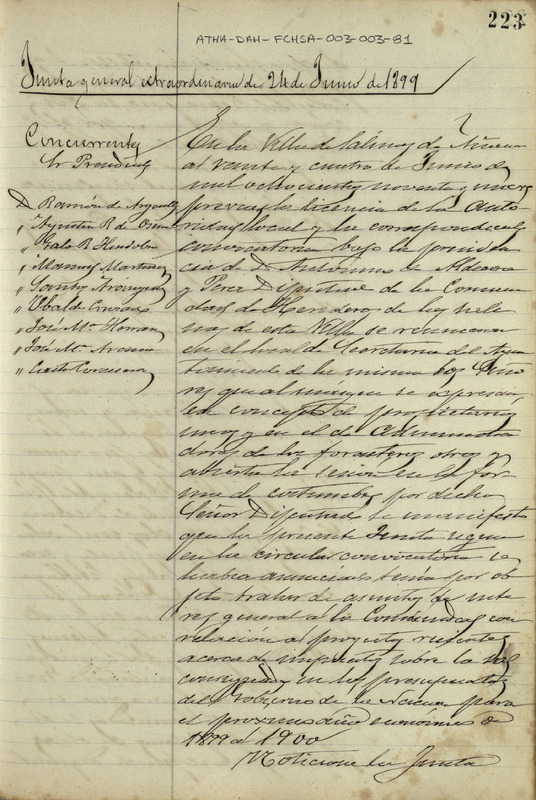 223
ATHA-DAH-FCHSA-003-003-81
Junta general extraordinaria de 24 de Junio de 1899
Concurrentes
Sr Presidente
D Ramón de
" Agustin R de
" Galo R
" Manuel Martinez
" Santos
" Ubaldo
" José Ma Herran
" José Ma
" Casto
En la Villa de Salinas de Añana
al veinte y cuatro de Junio de
mil ochocientos noventa y nueve
previa la licencia de la Auto
ridad local y la correspondiente
convocatoria bajo la presiden
cia de D
y Perez Diputado de la Comuni
dad de Herederos de las Sali
nas de esta Villa se reunieron
en el local de Secretaria del Ayun
tamiento de la misma los Seño
res que al margen se expresan,
en concepto de propietarios
unos y en el de Administra
dores de los forasteros otros y
abierta la sesion en la for
ma de costumbre por dicho
Señor Diputado se manifestó
que la presente Junta segun
en la circular convocatoria se
habia anunciado tenia por ob
jeto tratar de asuntos de inte
res general á la Comunidad con
relación al proyecto
acerca de impuesto sobre la sal
en los presupuestos
del Gobierno de la Nacion para
el proximo año economico de
1899 al 1900
la Junta